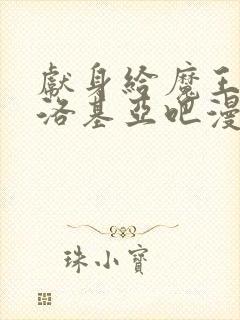 獻身給魔王
洛基亞吧漫
珠小寶